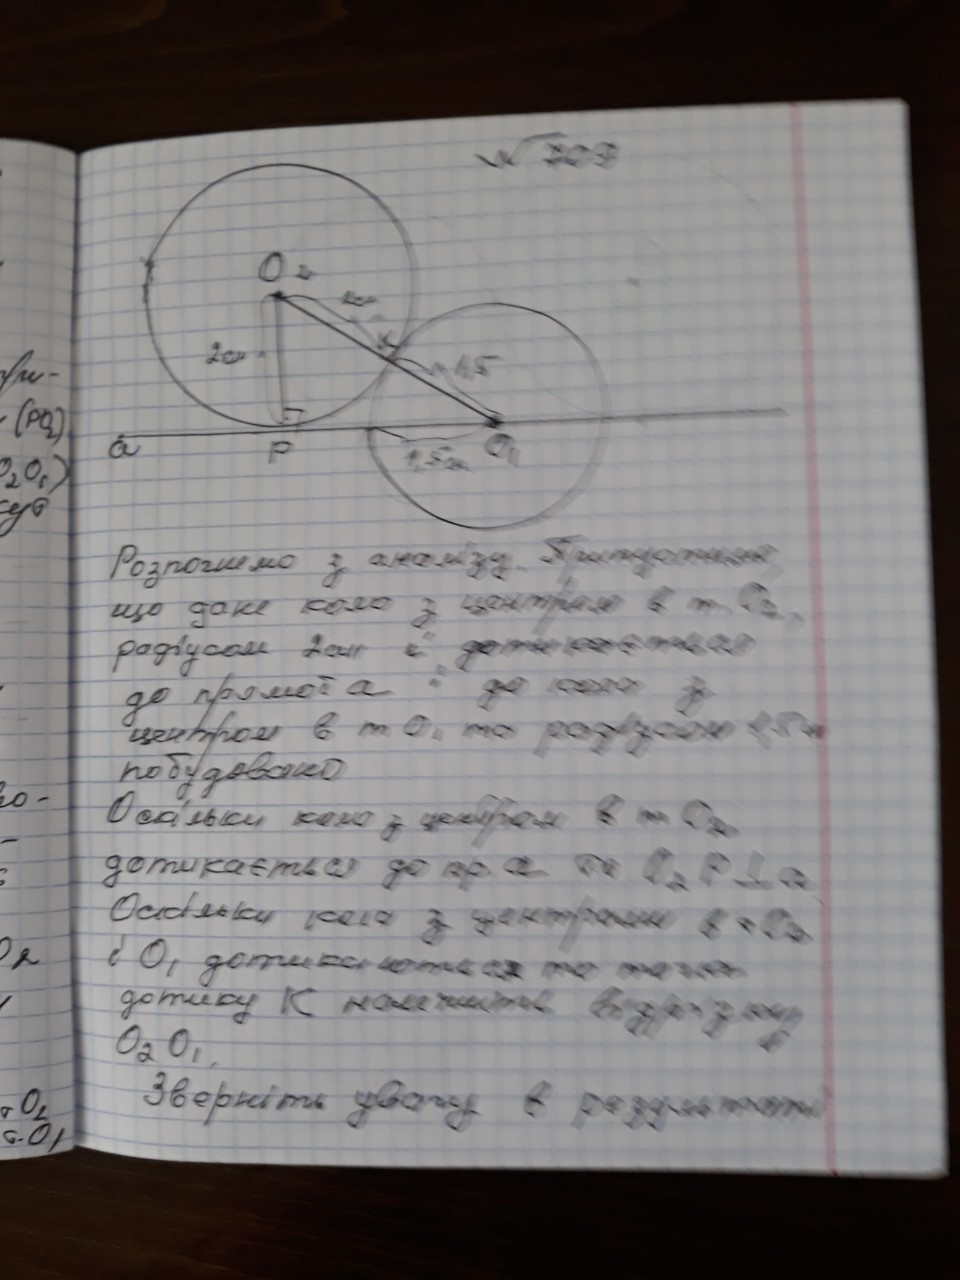 № 707
O₂
2см
2см
K
1,5
a
P
1,5см
O₁
Розпочнемо з аналізу. Припустимо,
що дане коло з центром в т. O₂,
радіусом 2см і дотикається
до прямої a і до кола з
центром в т O₁ та радіусом 1,5см
побудовано
Оскільки коло з центром в т O₂
дотикається до пр a то O₂P⊥a
Оскільки кола з центрами в т O₂
і O₁ дотикаються то точка
дотику K належить відрізку
O₂O₁.
Зверніть увагу в результаті
ри-
(PO₂)
O₂O₁)
кут
но-
O₂
т O₂
т.O₁